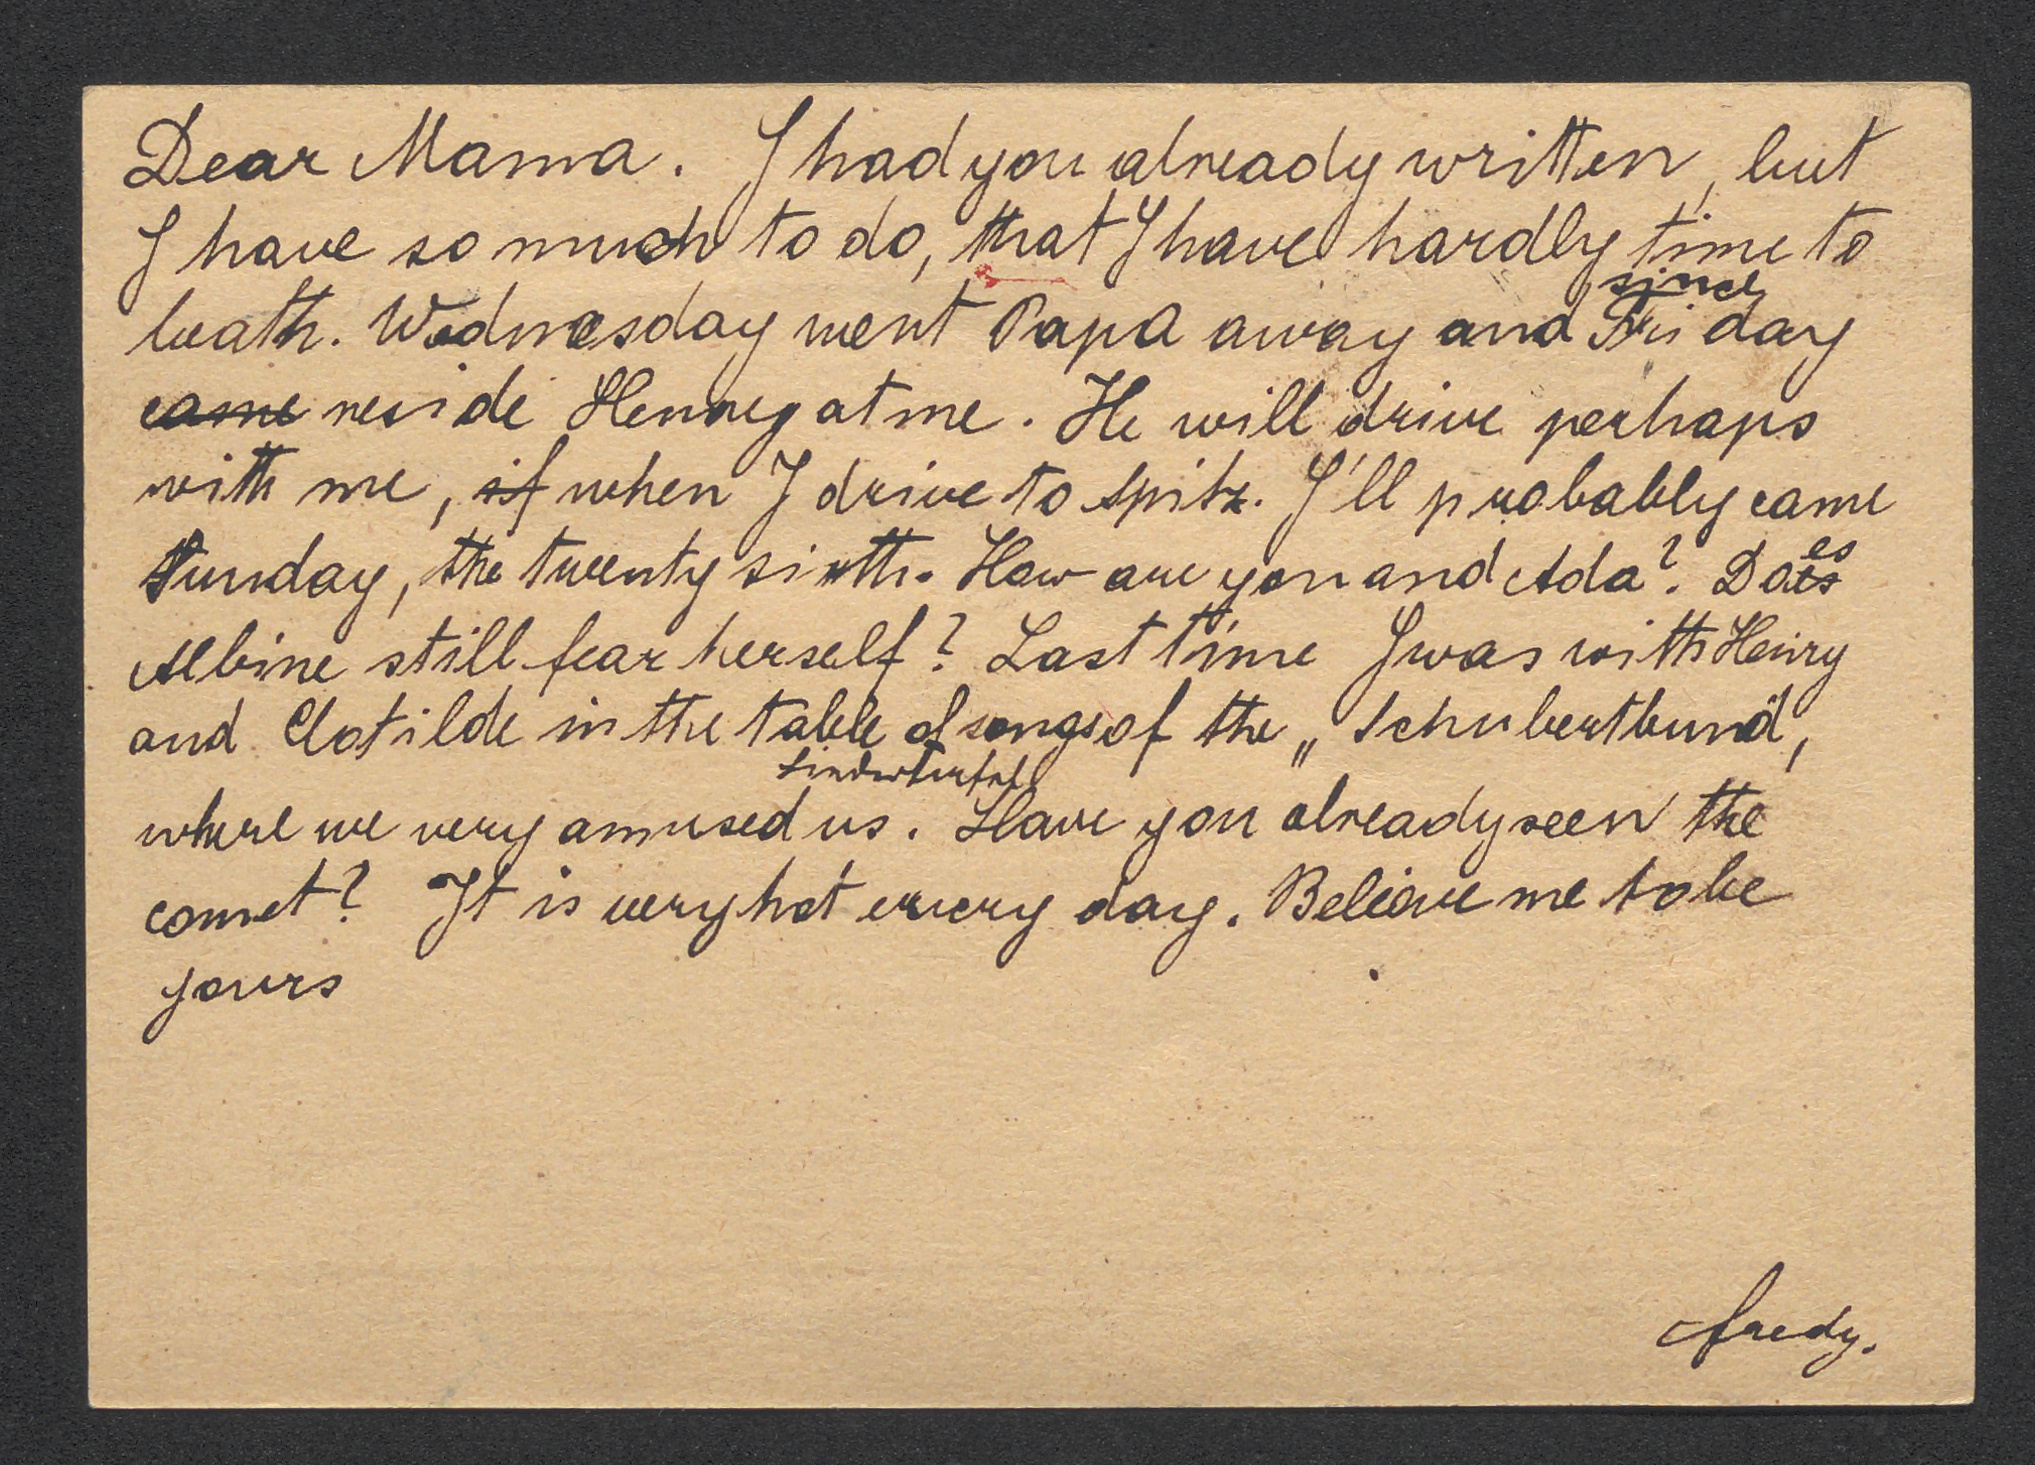 Dear Mama. I had you already written, but
I have so much to do, that I have hardly time to
breath. Wednesday went Papa away and since Friday
came reside Henry at me. He will drive perhaps
with me, if when I drive to Spitz. I'll probably came
Sunday, the twenty sixth. How are you and Ada? Does
Albine still fear herself? Last time I was with Henry
and Clotilde in the table of songs of the „Schubertbund",
where we very amused us. Have you already seen the
comet? It is very hot every day. Believe me to be
yours
Fredy.